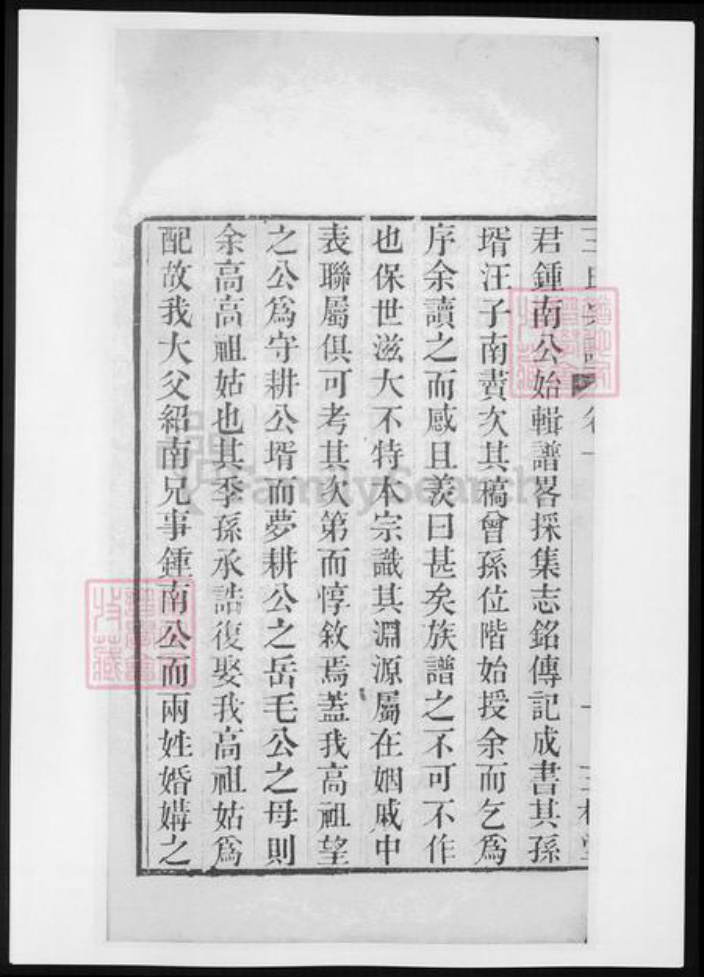 君鍾南公始輯譜畧採集志銘傳記成書其孫
壻汪子南賣次其稿曾孫位階始授余而乞爲
序余讀之而感且羨曰甚矣族譜之不可不作
也保世滋大不特本宗識其淵源屬在姻戚中
表聯屬俱可考其次第而惇敘焉蓋我高祖望
之公爲守耕公壻而夢耕公之岳毛公之母則
余高高祖姑也其季孫承誥復娶我高祖姑爲
配故我大父紹南兄事鍾南公而兩姓婚媾之
FamilySearch